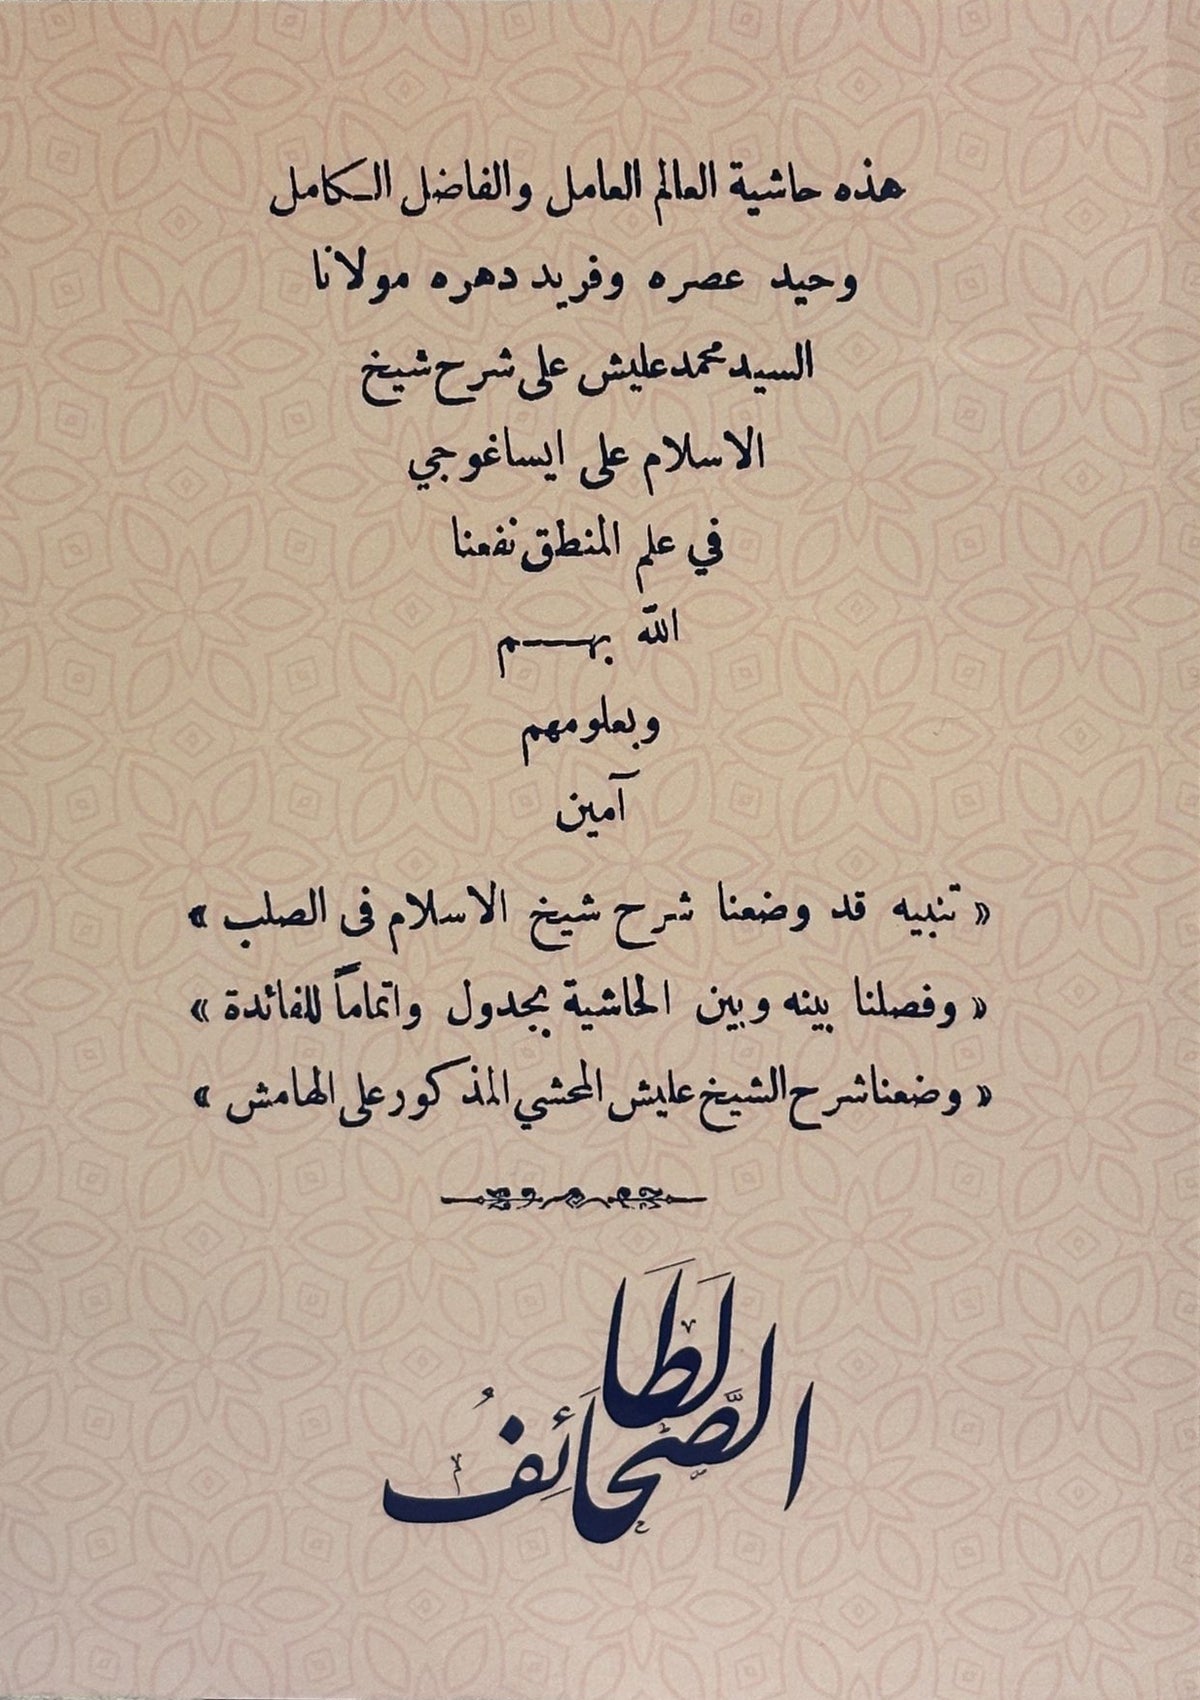 هذه حاشية العالم العامل والفاضل الكامل
وحيد عصره وفريد دهره مولانا
السيد محمد عليش على شرح شيخ
الاسلام على ايساغوجي
في علم المنطق نفعنا
الله بهـــم
وبعلومهم
آمين
« تنبيه قد وضعنا شرح شيخ الاسلام فى الصلب »
« وفصلنا بينه وبين الحاشية بجدول واتماماً للفائدة »
« وضعنا شرح الشيخ عليش المحشي المذكور على الهامش »
لَطَا
الصَّحَائِفُ